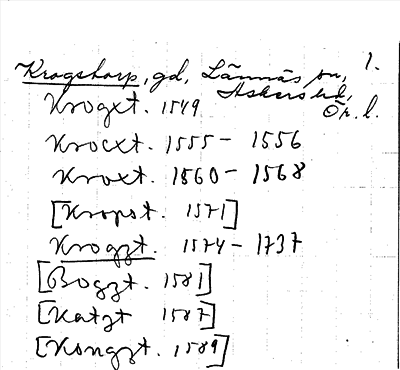 Krogstorp, gd, Lännäs sn, 1.
Askers hd,
Ör. l.
Krogxt. 1549
Krocxt. 1555 - 1556
Kroxt. 1560 - 1568
[Kropst. 1571]
Krogzt. 1574 - 1737
[Bogzt. 1581]
[Katzt 1587]
[Kongzt. 1589]